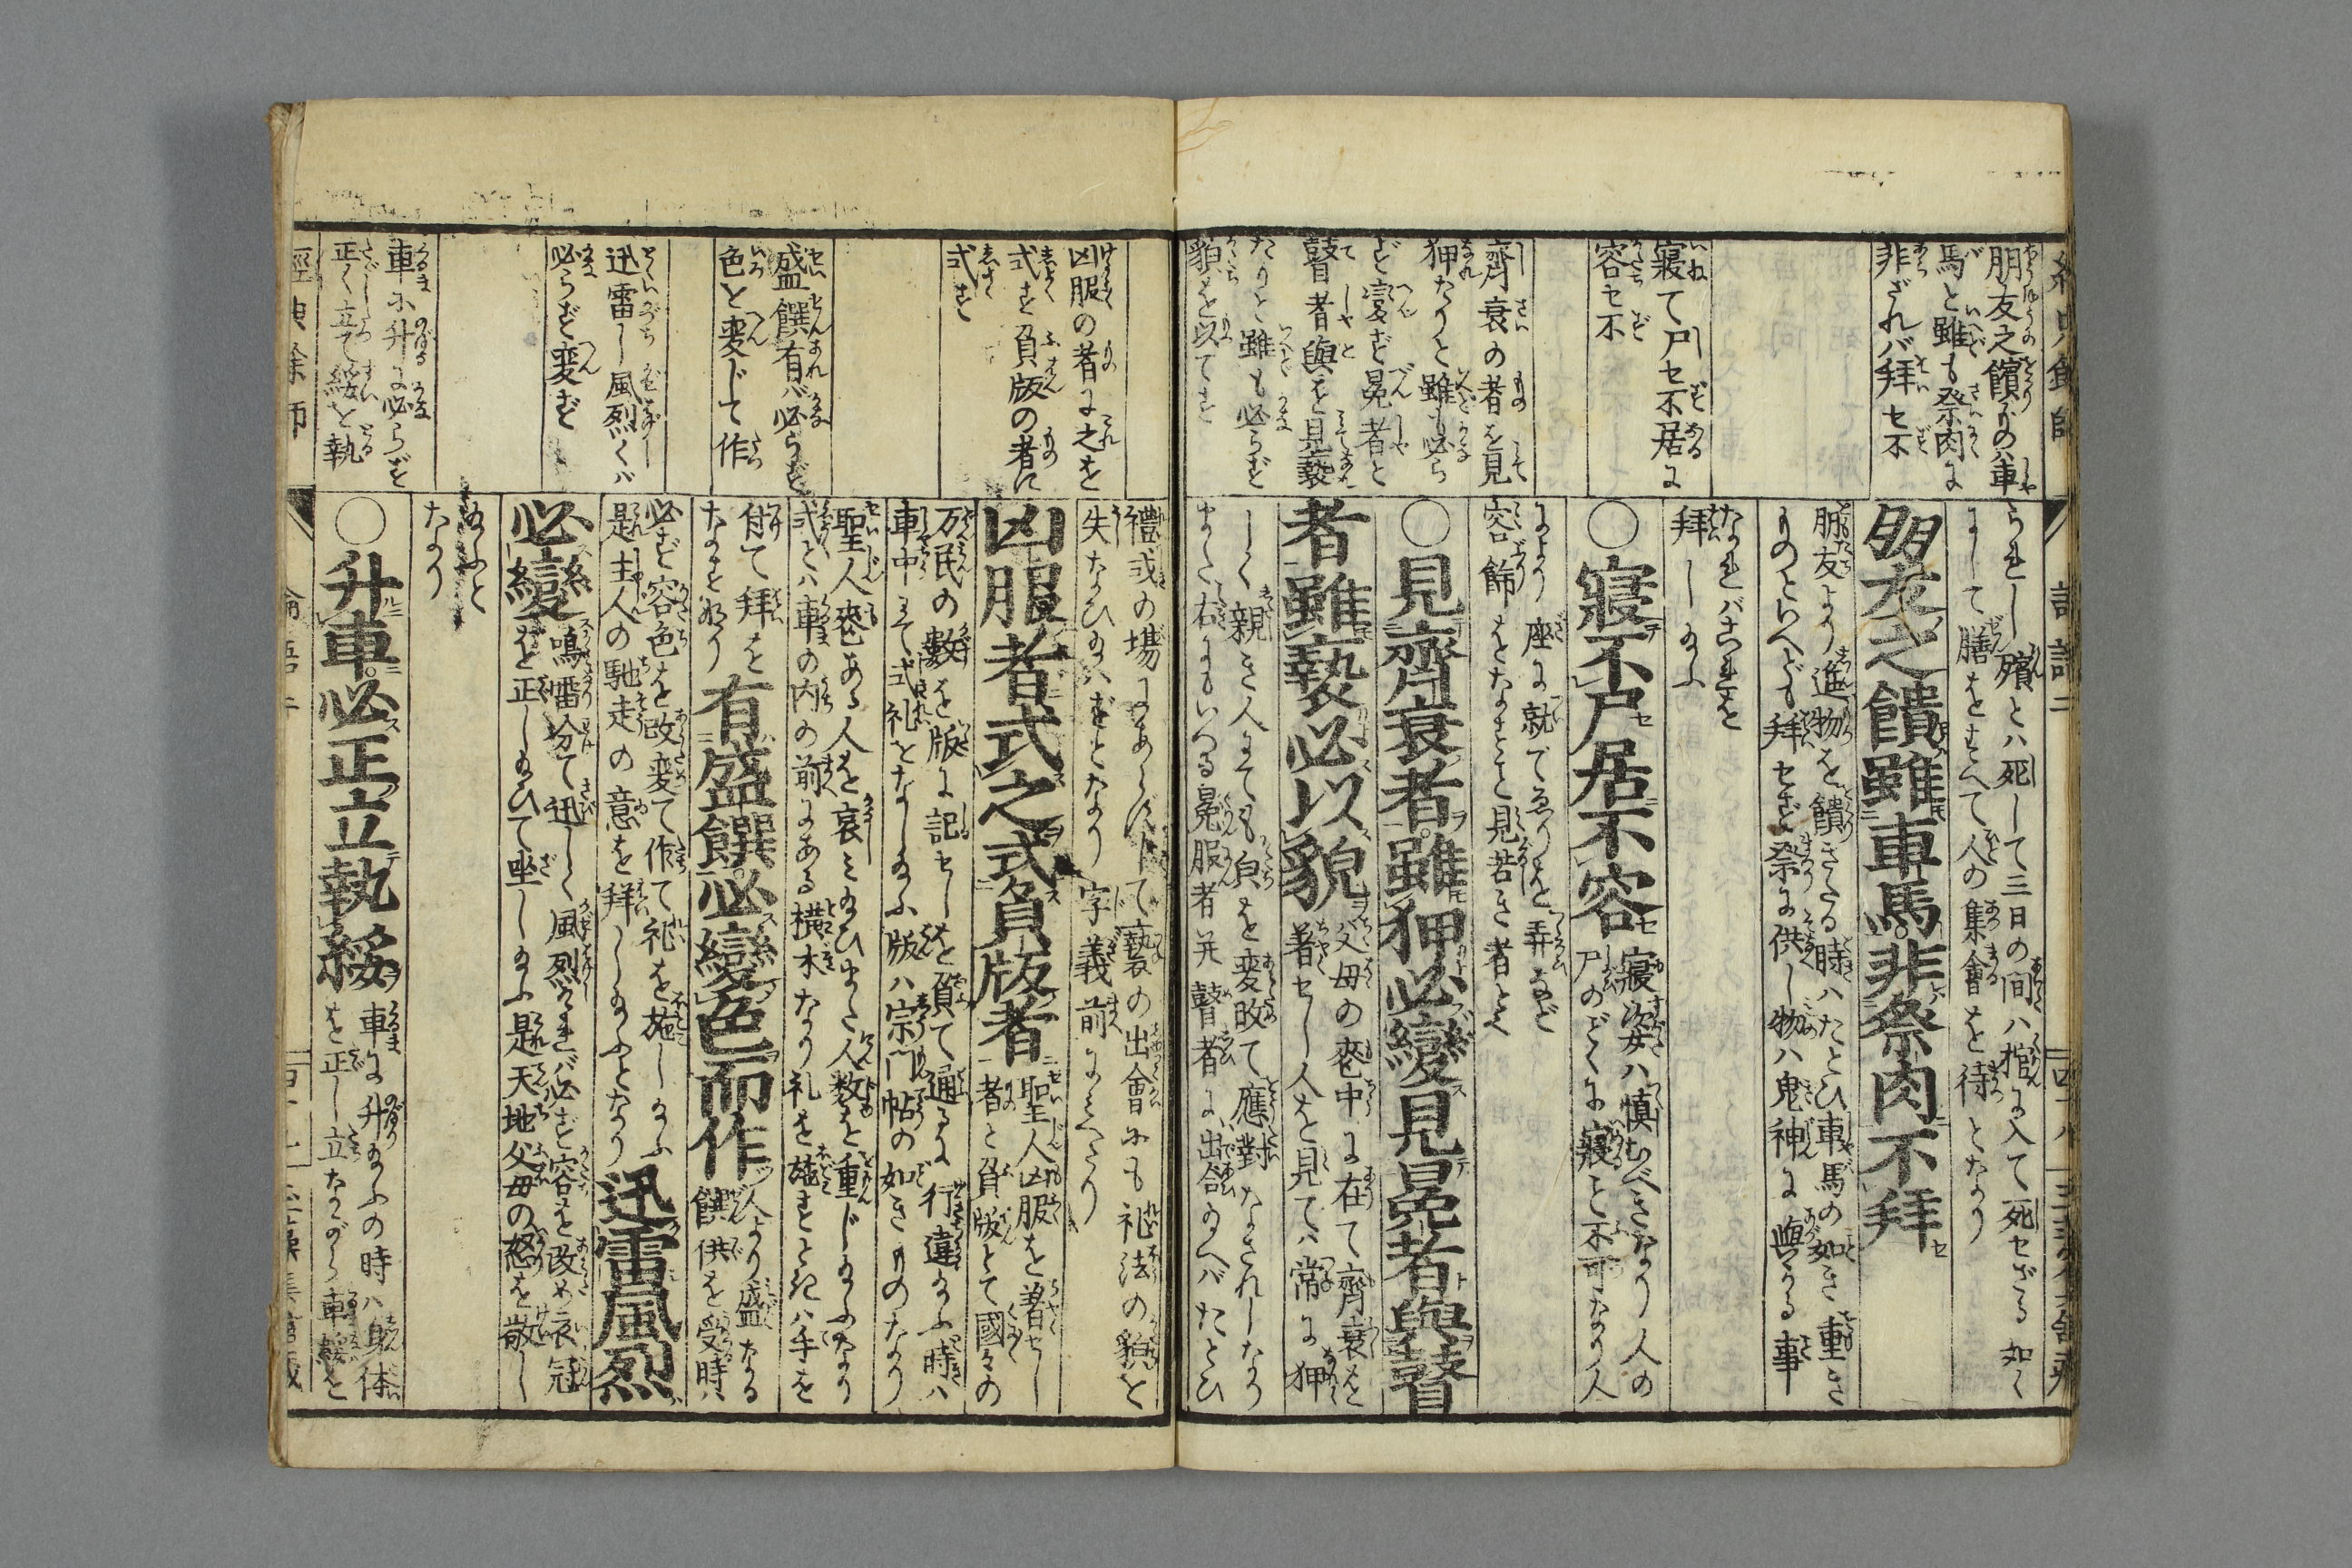 朋友之饋ものハ車
馬と雖も祭肉に
非ざれバ拜セ不
寢て尸セ不居に
容セ不
齊衰の者を見
狎たりと雖も必ら
ず変ず冕者と
瞽者與を見褻
たりと雖も必らず
貌を以てす
られし殯とハ死して三日の間ハ棺に入て死セざる如く
にして膳をそへて人の集會を待となり
朋友之饋雖車馬非祭肉不拜
朋友より進物を饋きたる時ハたとひ車馬の如き重き
ものといへども拜セず祭に供し物ハ鬼神に與る事
なれバこれを
拜したまふ
○寢不尸居不容
寢姿ハ慎むべきなり人の
尸のごとくに寢こと不可なり人
によりて座に就て
容飾をなすと見苦き者とぞ
○見齊衰者雖狎必變見冕者與瞽
者雖褻必以貌
父母の喪中に在て齊衰を
著セし人を見てハ常に狎
しく親き人にても皃を変改て應對なされしなり
また右にもいへる冕服者并瞽者に出合たまへバたとひ
凶服の者に之を
式す負版の者に
式す
盛饌有バ必らず
色を変じて作
迅雷し風烈くバ
必らず変ず
車に升に必らず
正く立て綏を執
禮式の場にあらずして褻の出會にも礼法の貌を
失なひたまハずとなり字義前にみへたり
凶服者式之式負版者
聖人凶服を著セし
者と負版とて國々の
万民の數を版に記セしを負て通るに行違たまふ時ハ
車中にて式礼をなしたまふ版ハ宗門帖の如きものなり
聖人喪ある人を哀みたまひまた人数を重じたまふなり
式とハ車の内の前にある横木なり礼を施すときハ手を
付て拜を
なすなり
有盛饌必變色而作
人より盛なる
饌供を受時ハ
必ず容色を改変て作て礼を施したまふ
是主人の馳走の意を拜したまふとなり
迅雷風烈
必變
鳴雷分て迅しく風烈けれバ必ず容を改め衣冠
を正したまひて坐したまふ是天地父母の怒を敬し
たまふと
なり
○升車必正立執綏
車に升たまふの時ハ身体
を正し立ながら車綏を